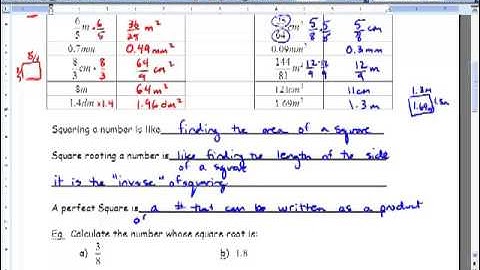 6/5 m • 6/5 36/25 m² 25/64 m² 5/8 • 5/8 5/8 cm
0.7mm 0.49 mm² 0.09mm² 0.3 mm
8/3 cm • 8/3 64/9 cm² 144/81 m² 12/9 • 12/9 12/9 m
8m 64 m² 121cm² 11cm
1.4dm × 1.4 1.96 dm² 1.69m² 1.3 m
8/3
1.3m
1.69m 1.3m
Squaring a number is like finding the area of a square
Square rooting a number is like finding the length of the side
of a square
it is the "inverse" of squaring
A perfect Square is a # that can be written as a product
of
Eg. Calculate the number whose square root is:
a) 3/8 b) 1.8